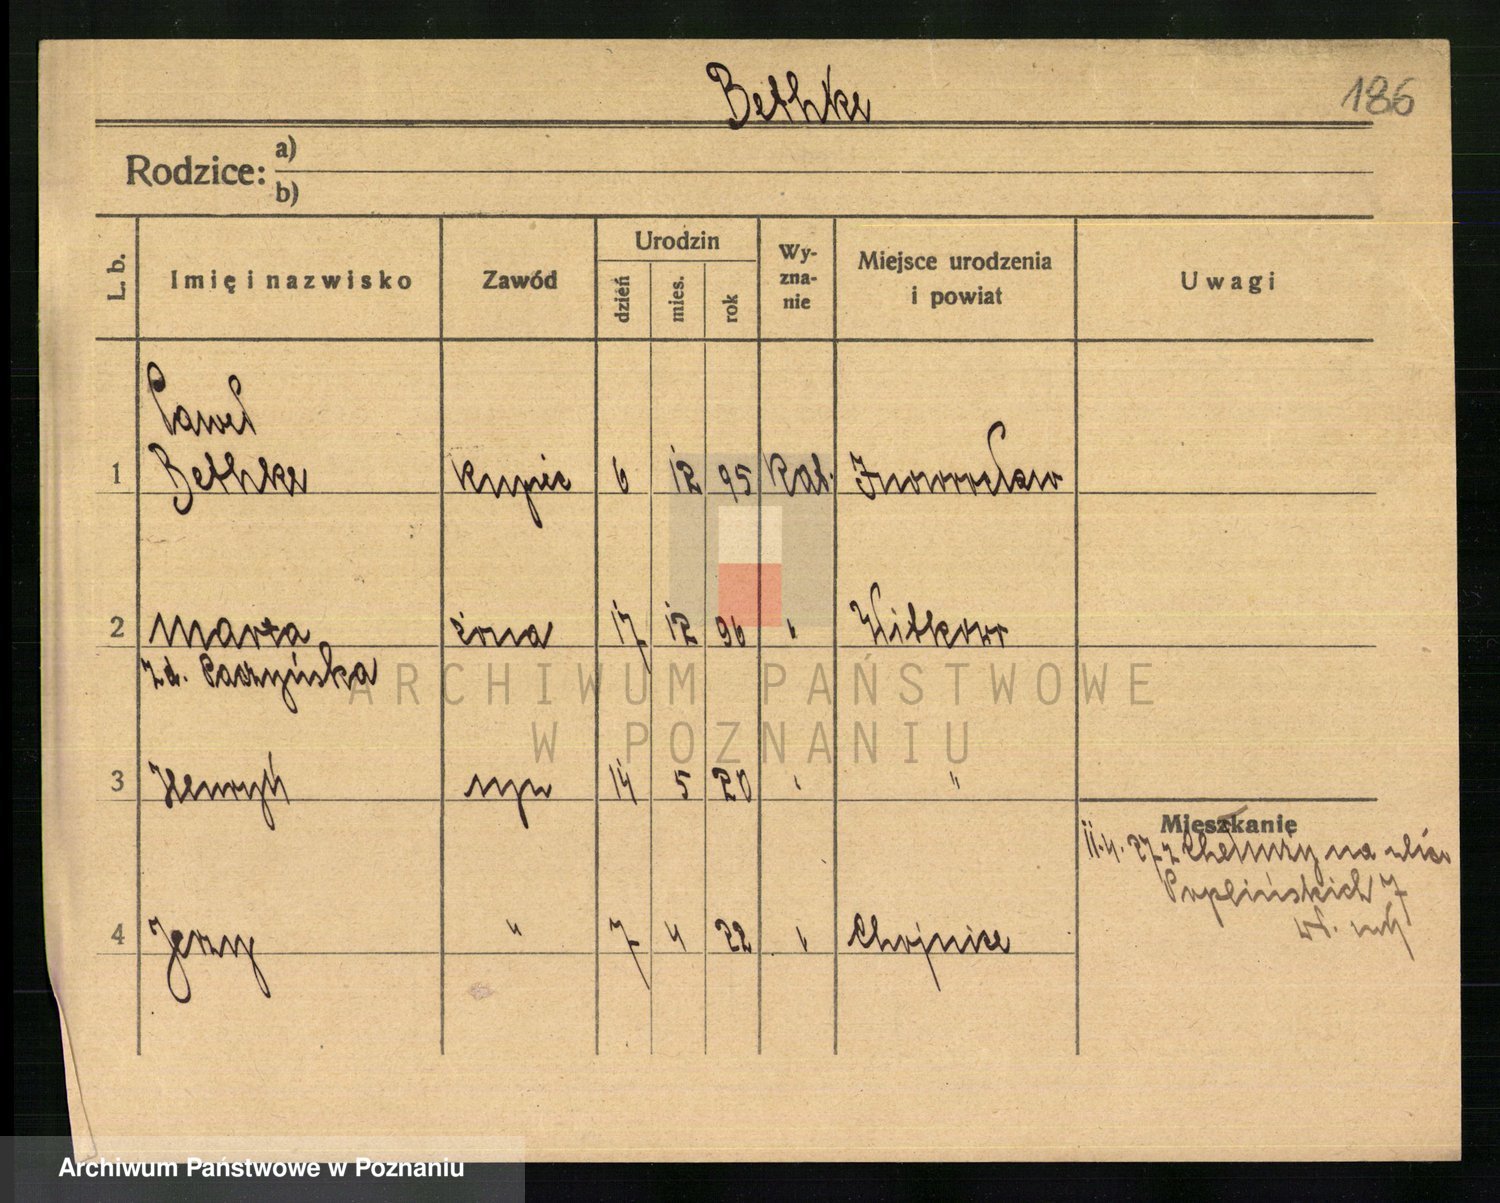 Bethke
186
Rodzice: a)
b)
L. b.
Imię i nazwisko
Zawód
Urodzin
dzień
mies.
rok
Wy-
zna-
nie
Miejsce urodzenia
i powiat
Uwagi
Paweł
1 Bethke kupiec 6 12 95 Kat. Inowrocław
2 Marta żona 17 12 96 " Witkowo
zd. Paczyńska
3 Henryk syn 14 5 20 " "
Mieszkanie
11.4.27 z Chełmży na ulicę
Poplińskich 7
4 Jerzy " 7 4 22 " Chojnice
ARCHIWUM PAŃSTWOWE
W POZNANIU
Archiwum Państwowe w Poznaniu